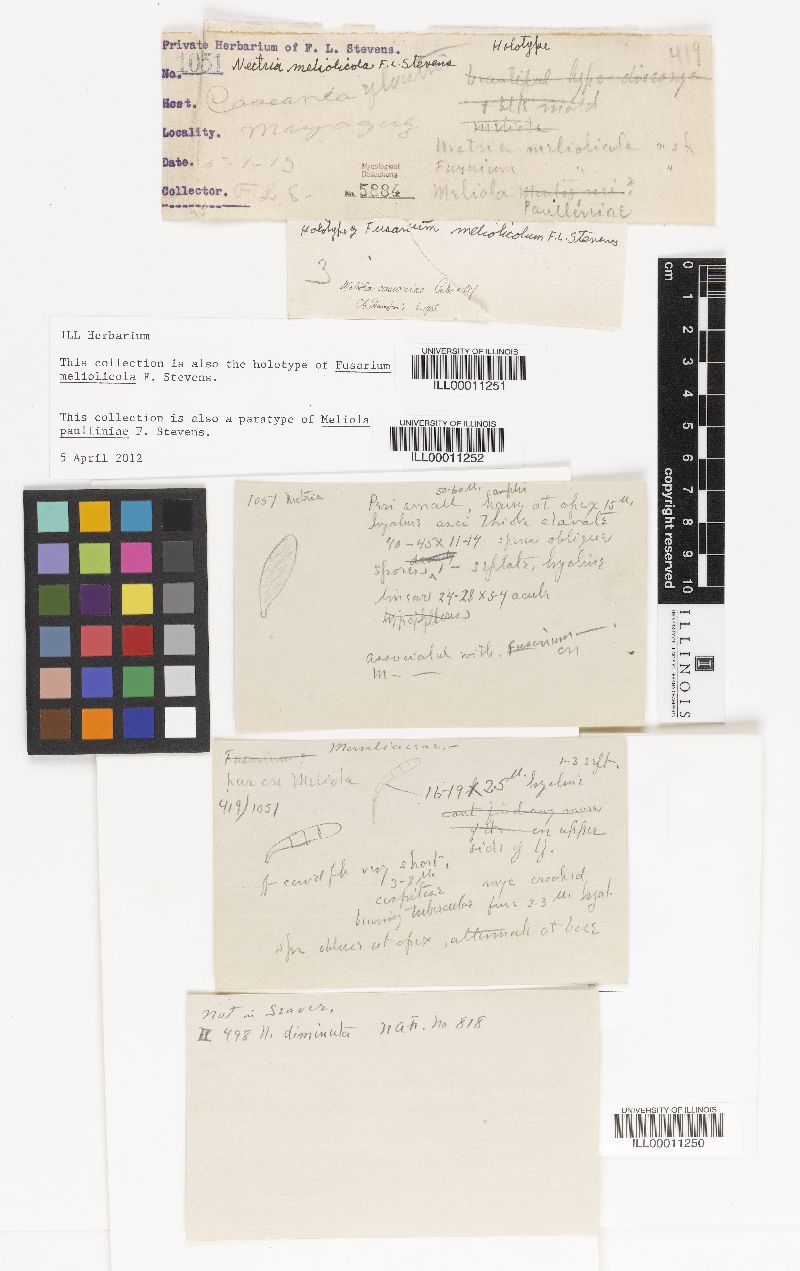 Private Herbarium of F. L. Stevens.
Holotype
419
No. 1051 Nectria meliolicola F.L. Stevens
beautiful hypo
Host. Casearia sylvestris
Meliola
Locality. Mayaguez
Nectria meliolicola n sp
Date. -1-13
Fusarium " "
Mycological
Collections
Collector. F L S.
No 5884
Meliola ?
Paulliniae
Holotype of Fusarium meliolicolum F.L. Stevens
3
ILL Herbarium
This collection is also the holotype of Fusarium
meliolicola F. Stevens.
This collection is also a paratype of Meliola
paulliniae F. Stevens.
5 April 2012
UNIVERSITY OF ILLINOIS
ILL00011251
UNIVERSITY OF ILLINOIS
ILL00011252
cm
0
1
5
10
copyright reserved
ILLINOIS
1051 Nectria
50-60 µ.
Peri small, hairy at apex 15 µ.
hyaline asci thick clavate
40-45 x 11-14 spores oblique
spores 1- septate, hyaline
linear 24-28 x 3-4 acute
associated with Fusarium on
M-
Fusarium ?
par on Meliola
419/1051
1-3 sept.
16-19 x 2.5 µ. hyaline
cant find any more
on upper
side of lf.
very short,
3-8 µ.
myc crooked
tubercular
spr at apex, at base
Not in Seaver.
498 N. diminuta N.A.F. No 818
UNIVERSITY OF ILLINOIS
ILL00011250